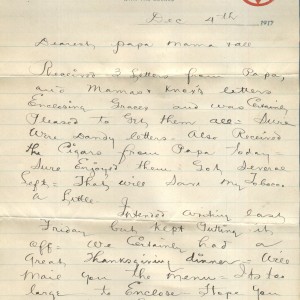 Dec 4th 1917
Dearest Papa Mama & all
Received 3 letters from Papa,
and Mamas & Knox's letters
Enclosing Graces and was Certainly
Pleased to Get them all = Sure
Were Dandy letters = Also Received
the Cigars from Papa Today =
Sure Enjoyed them Got Several
Left = That will Save my Tobacco
A Little. I
Intended writing last
Friday but kept Putting it
off = We Certainly had a
Great Thanksgiving dinner = Will
Mail you the menu = Its too
large to Enclose = I hope you